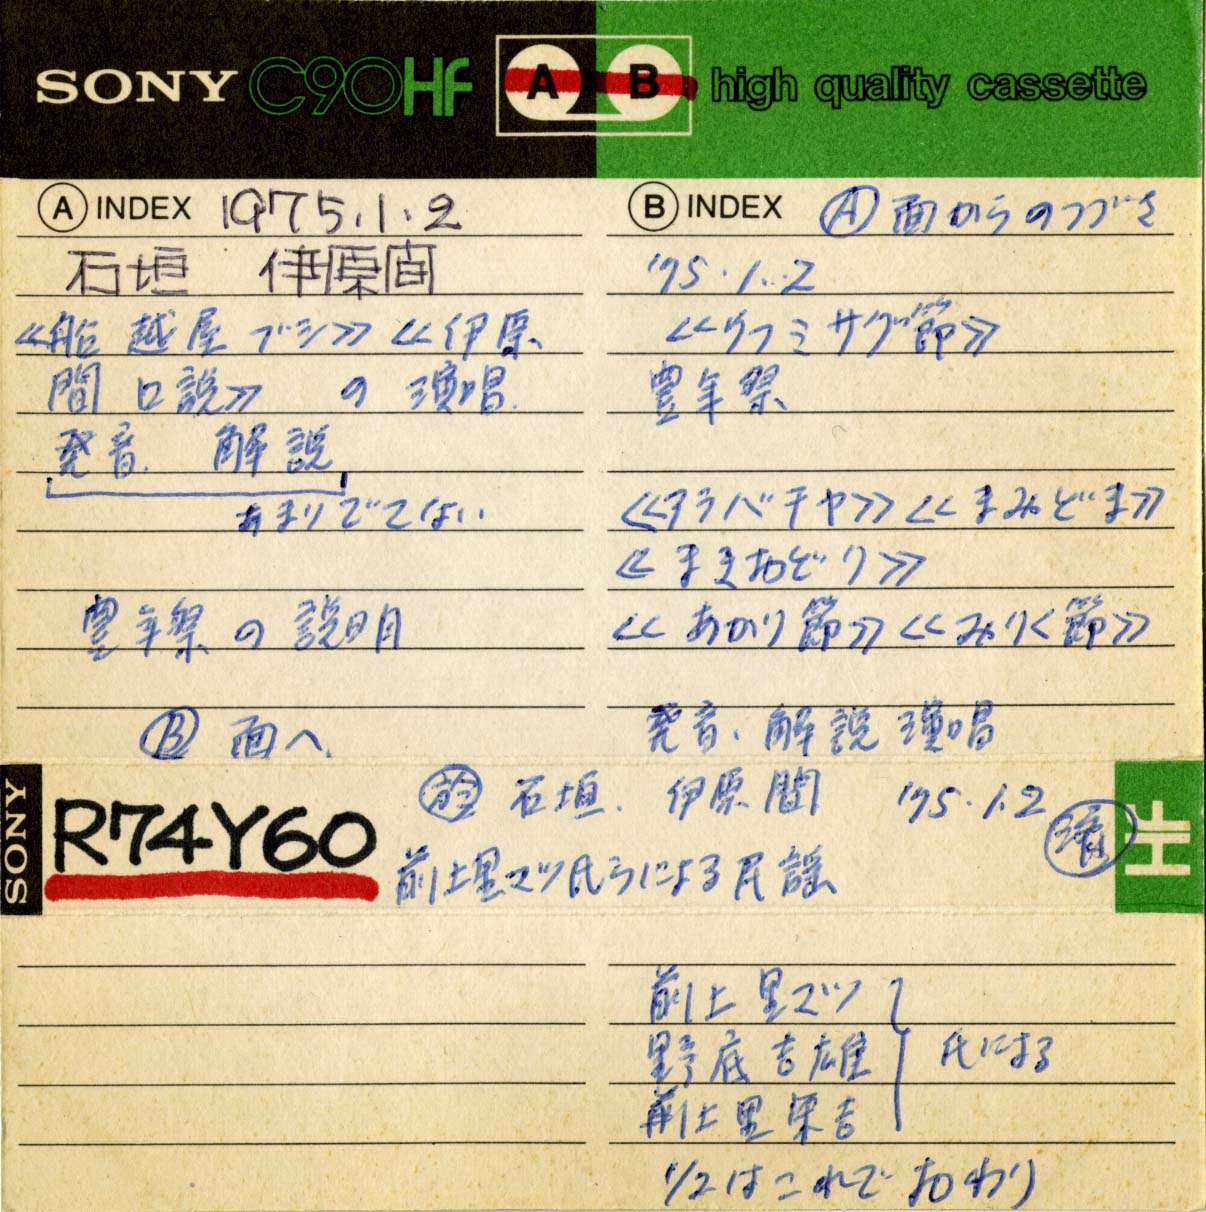 SONY C90HF A B high quality cassette
A INDEX 1975.1.2
石垣 伊原間
≪船越屋ブシ≫ ≪伊原
間口説≫ の 演唱.
発音. 解説
あまりでてない
豊年祭の説明
B 面へ.
B INDEX A 面からのつづき
'75.1.2
≪ウフミサグ節≫
豊年祭
≪アラバチャ≫ ≪まみどま≫
≪まきおどり≫
≪あかり節≫ ≪みりく節≫
発音. 解説 演唱
SONY
R74Y60
於 石垣. 伊原間 '75.1.2
前上里マツ氏らによる民謡
済
HF
前上里マツ
野底吉雄 氏による
前上里栄吉
1/2はこれでおわり